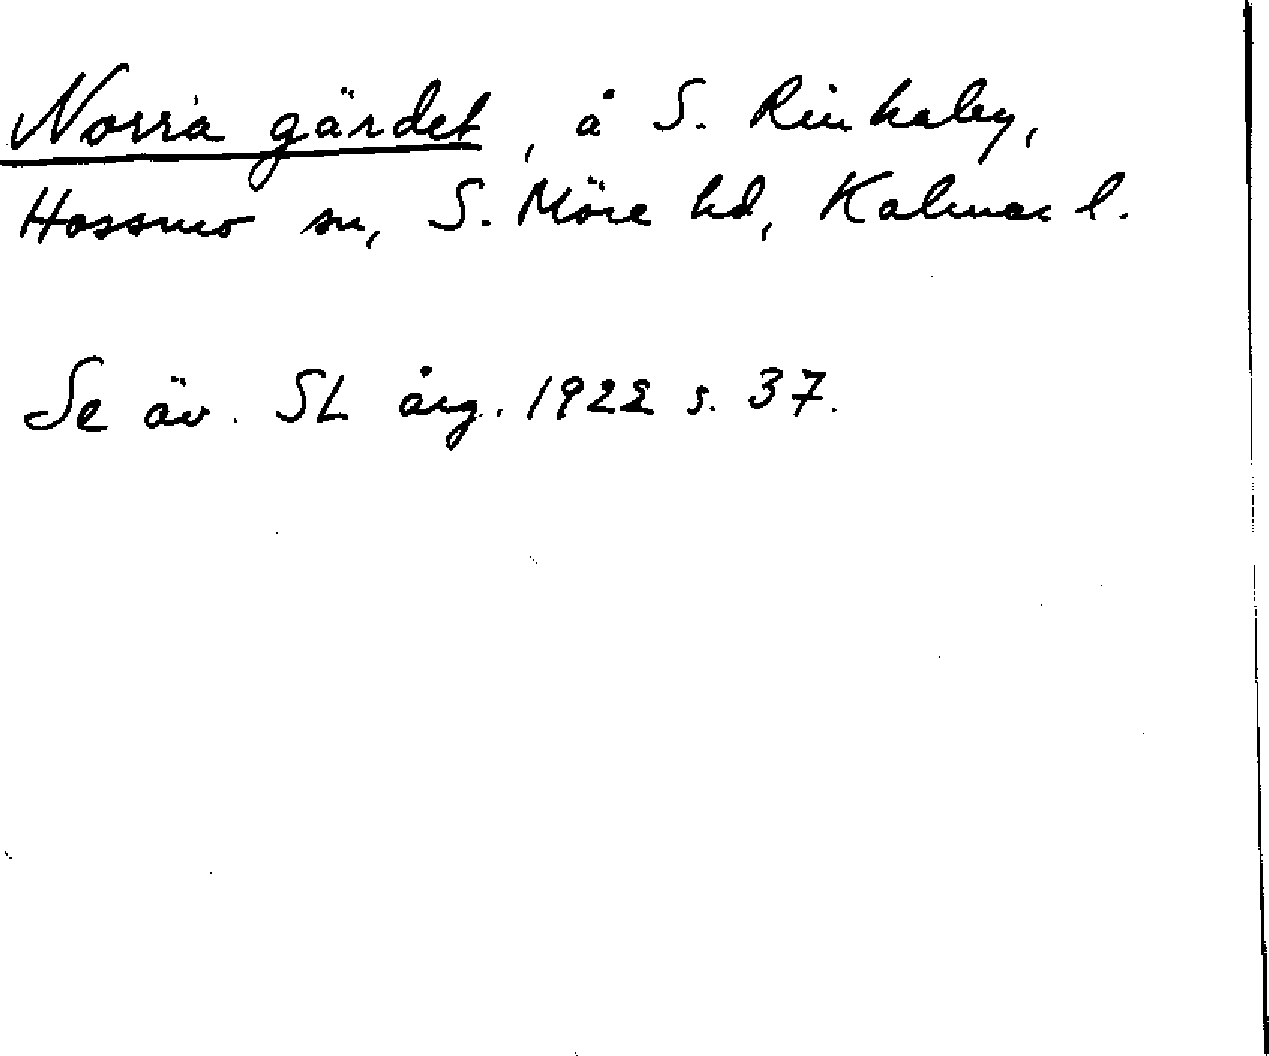 Norra gärdet, å S. Rinkaby,
Hossmo sn, S. Möre hd, Kalmar l.
Se äv. SL årg. 1922 s. 37.